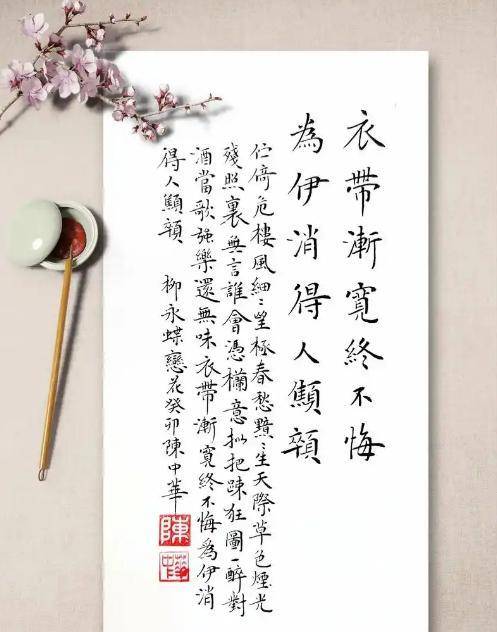 衣帶漸寬終不悔
為伊消得人顦顇
佇倚危樓風細〻望極春愁黯〻生天際草色煙光
殘照裏無言誰會憑欄意擬把疎狂圖一醉對
酒當歌強樂還無味衣帶漸寬終不悔為伊消
得人顦顇 柳永蝶戀花癸卯陳中華
陳
中華